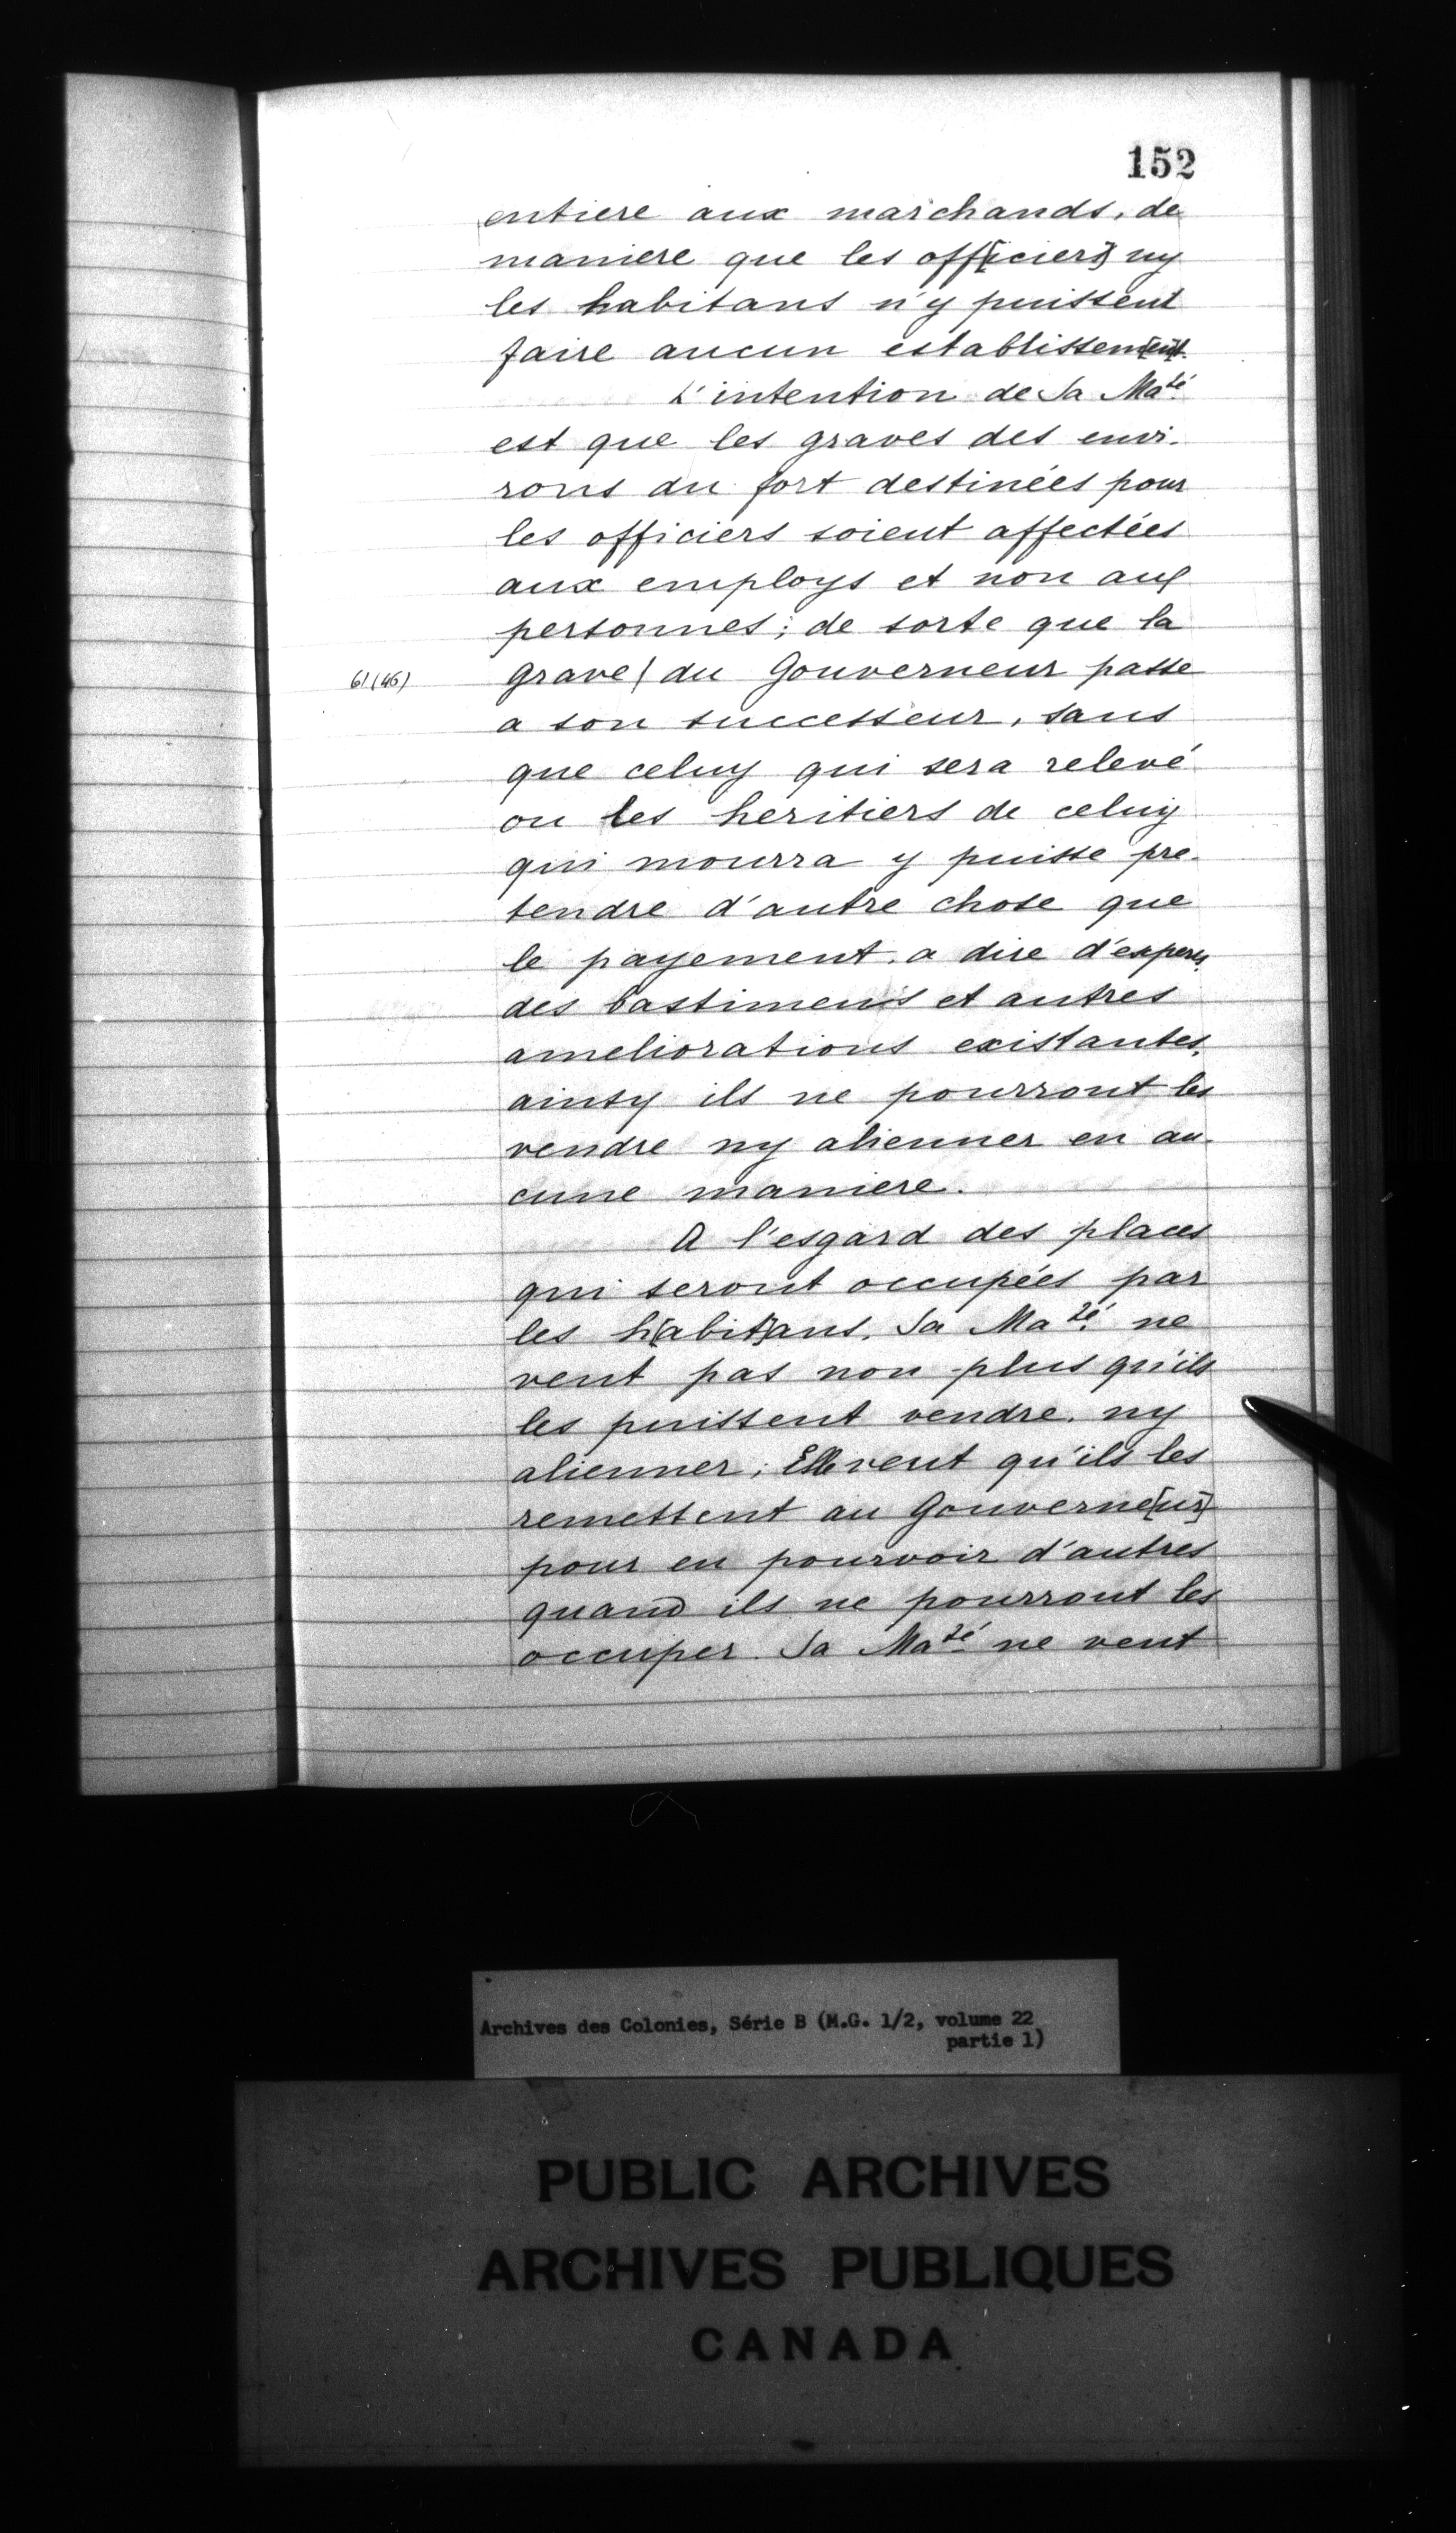 152
entiere aux marchands, de
maniere que les off[iciers] ny
les habitans n'y puissent
faire aucun establissem[en]t.
L'intention de Sa Maté
est que les graves des envi-
rons du fort destinées pour
les officiers soient affectées
aux employs et non aux
personnes; de sorte que la
61 (46)
grave / du Gouverneur passe
a son successeur, sans
que celuy qui sera relevé
ou les heritiers de celuy
qui mourra y puisse pre-
tendre d'autre chose que
le payement, a dire d'experts,
des bastimens et autres
ameliorations existantes,
ainsy ils ne pourront les
vendre ny alienner en au-
cune maniere.
A l'esgard des places
qui seront occupées par
les h[abit]ans, Sa Maté ne
veut pas non plus qu'ils
les puissent vendre, ny
alienner; Elle veut qu'ils les
remettent au Gouverne[ur]
pour en pourvoir d'autres
quand ils ne pourront les
occuper. Sa Maté ne veut
Archives des Colonies, Série B (M.G. 1/2, volume 22
partie 1)
PUBLIC ARCHIVES
ARCHIVES PUBLIQUES
CANADA